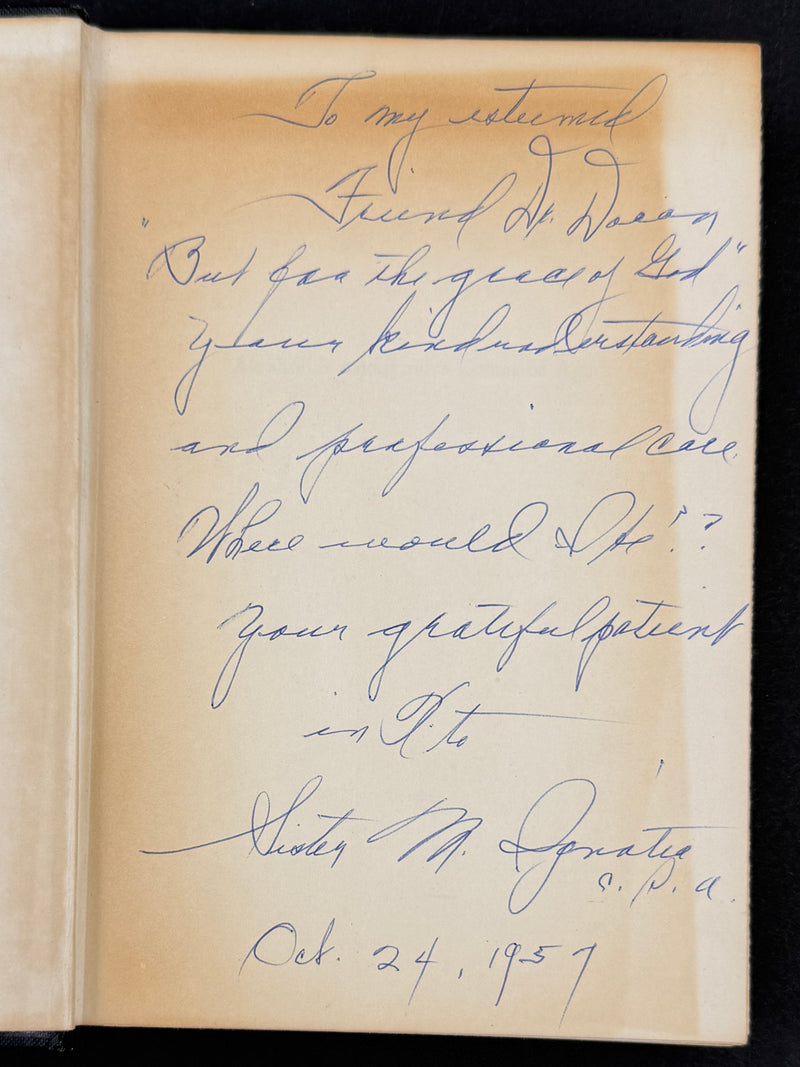 To my esteemed
Friend Dr. Doran
"But for the grace of God"
Your kind understanding
and professional care
Where would I be"??
Your grateful patient
in X.to
Sister M. Ignatia
C.S.A.
Oct. 24, 1957